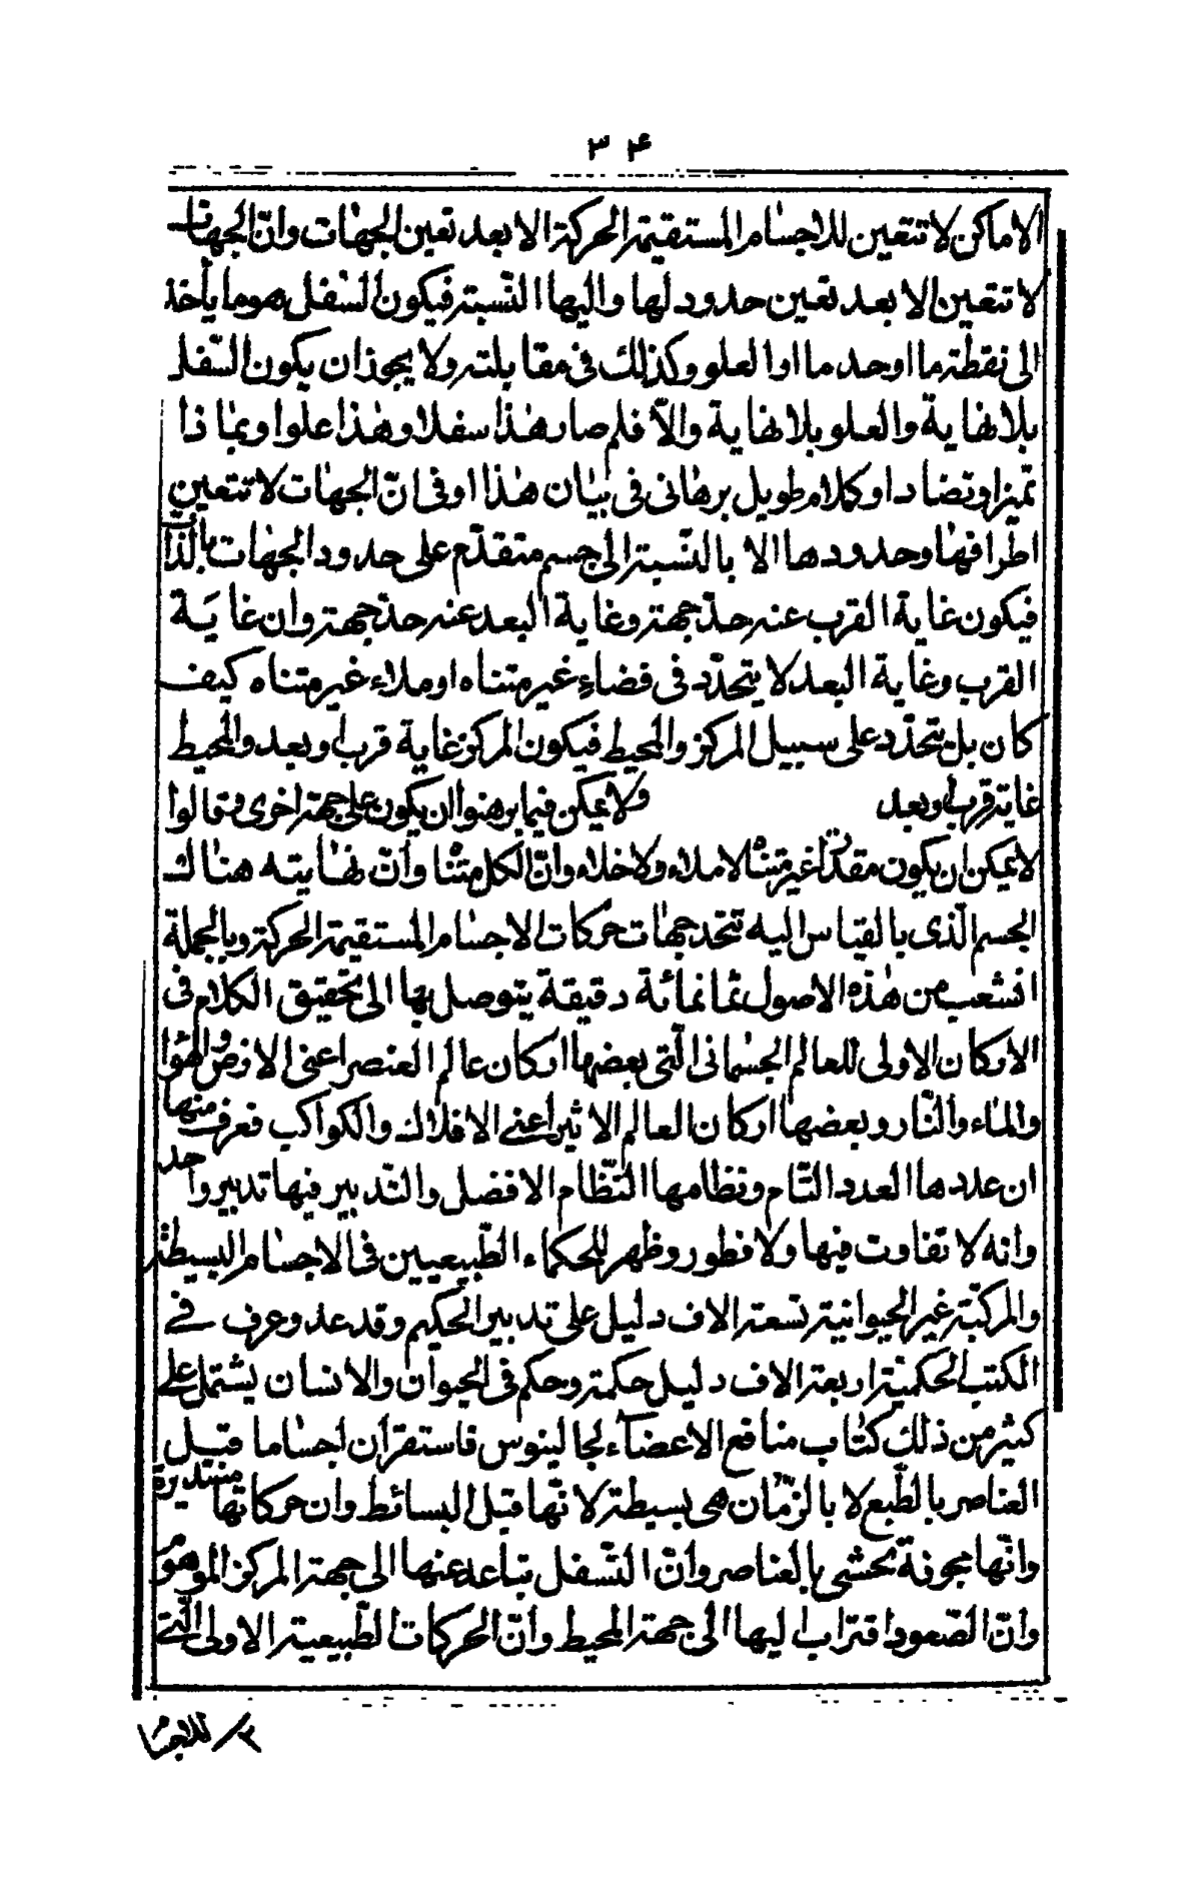 ۳۴
الاماكن لا تتعين للاجسام المستقيمة الحركة الا بعد تعين الجهات وانّ الجهات
لا تتعين الا بعد تعين حدود لها واليها النّسبة فيكون السّفل هو ما يأخذ
الى نقطة ما او حد ما او العلو وكذلك فى مقابلته ولا يجوز ان يكون السّفل
بلا نهاية والعلو بلا نهاية والّا فلم صار هذا سفلا وهذا علوا وبماذا
تميزا وتضادا وكلام طويل برهانى فى بيان هذا او فى انّ الجهات لا تتعين
اطرافها وحدودها الا بالنّسبة الى جسم متقدّم على حدود الجهات بالذّات
فيكون غاية القرب عنه حدّ جهة وغاية البعد عنه حدّ جهة وان غاية
القرب وغاية البعد لا يتحدّد فى فضاء غير متناه او ملاء غير متناه كيف
كان بل يتحدّد على سبيل المركز والمحيط فيكون المركز غاية قرب او بعد والمحيط
غاية قرب او بعد ولا يمكن فيما برهنوا ان يكون على جهة اخرى وقالوا
لا يمكن ان يكون مقدار غير متناه لا ملاء ولا خلاء وانّ الكل متناه وانّ نهايته هنالك
الجسم الّذى بالقياس اليه تتحدد جهات حركات الاجسام المستقيمة الحركة وبالجملة
انشعب من هذه الاصول ثمانمائة دقيقة يتوصل بها الى تحقيق الكلام فى
الاركان الاولى للعالم الجسمانى الّتى بعضها اركان عالم العنصر اعنى الارض والهواء
والماء والنّار وبعضها اركان العالم الاثير اعنى الافلاك والكواكب فعرف منها
ان عددها العدد التّام ونظامها النّظام الافضل والتّدبير فيها تدبير واحد
وانه لا تفاوت فيها ولا فطور وظهر للحكماء الطّبيعيين فى الاجسام البسيطة
والمركبّة غير الحيوانية تسعة الاف دليل على تدبير الحكيم وقد عد وعرف فى
الكتب الحكميّة اربعة الاف دليل حكمة وحكم فى الحيوان والانسان يشتمل على
كثير من ذلك كتاب منافع الاعضآء لجالينوس فاستقرّ ان اجساما قبل
العناصر بالطّبع لا بالزّمان هى بسيطة لانّها قبل البسائط وان حركاتها مستديرة
وانّها مجوفة تحشى بالعناصر وانّ التّسفل تباعد عنها الى جهة المركز الموهوم
وانّ الصّعود اقتراب اليها الى جهة المحيط وانّ الحركات الطّبيعية الاولى الّتى
للاجسام ۳